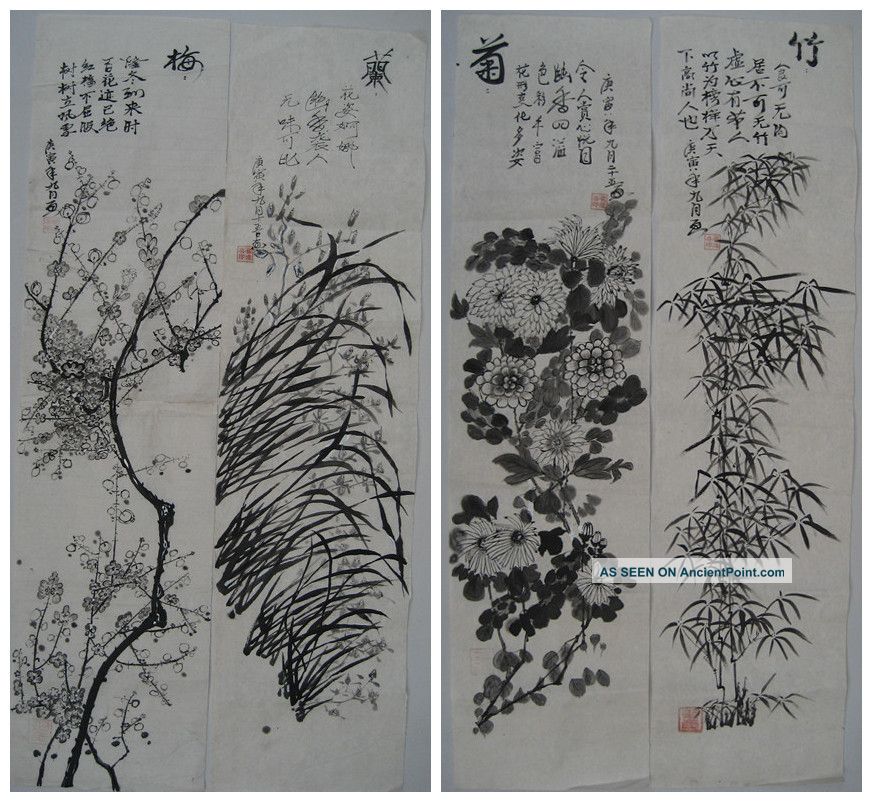 梅
隆冬到来时
百花迹已绝
红梅不屈服
树树立风雪
庚寅年九月画
蘭
花姿婀娜
幽香袭人
无味可比
庚寅年九月十五日画
菊
花形变化多姿
色彩丰富
幽香四溢
令人赏心悦目
庚寅年九月二十五画
竹
食可无肉
居不可无竹
虚心有节人
以竹为榜样 天
下高尚人也
庚寅年九月画
AS SEEN ON AncientPoint.com